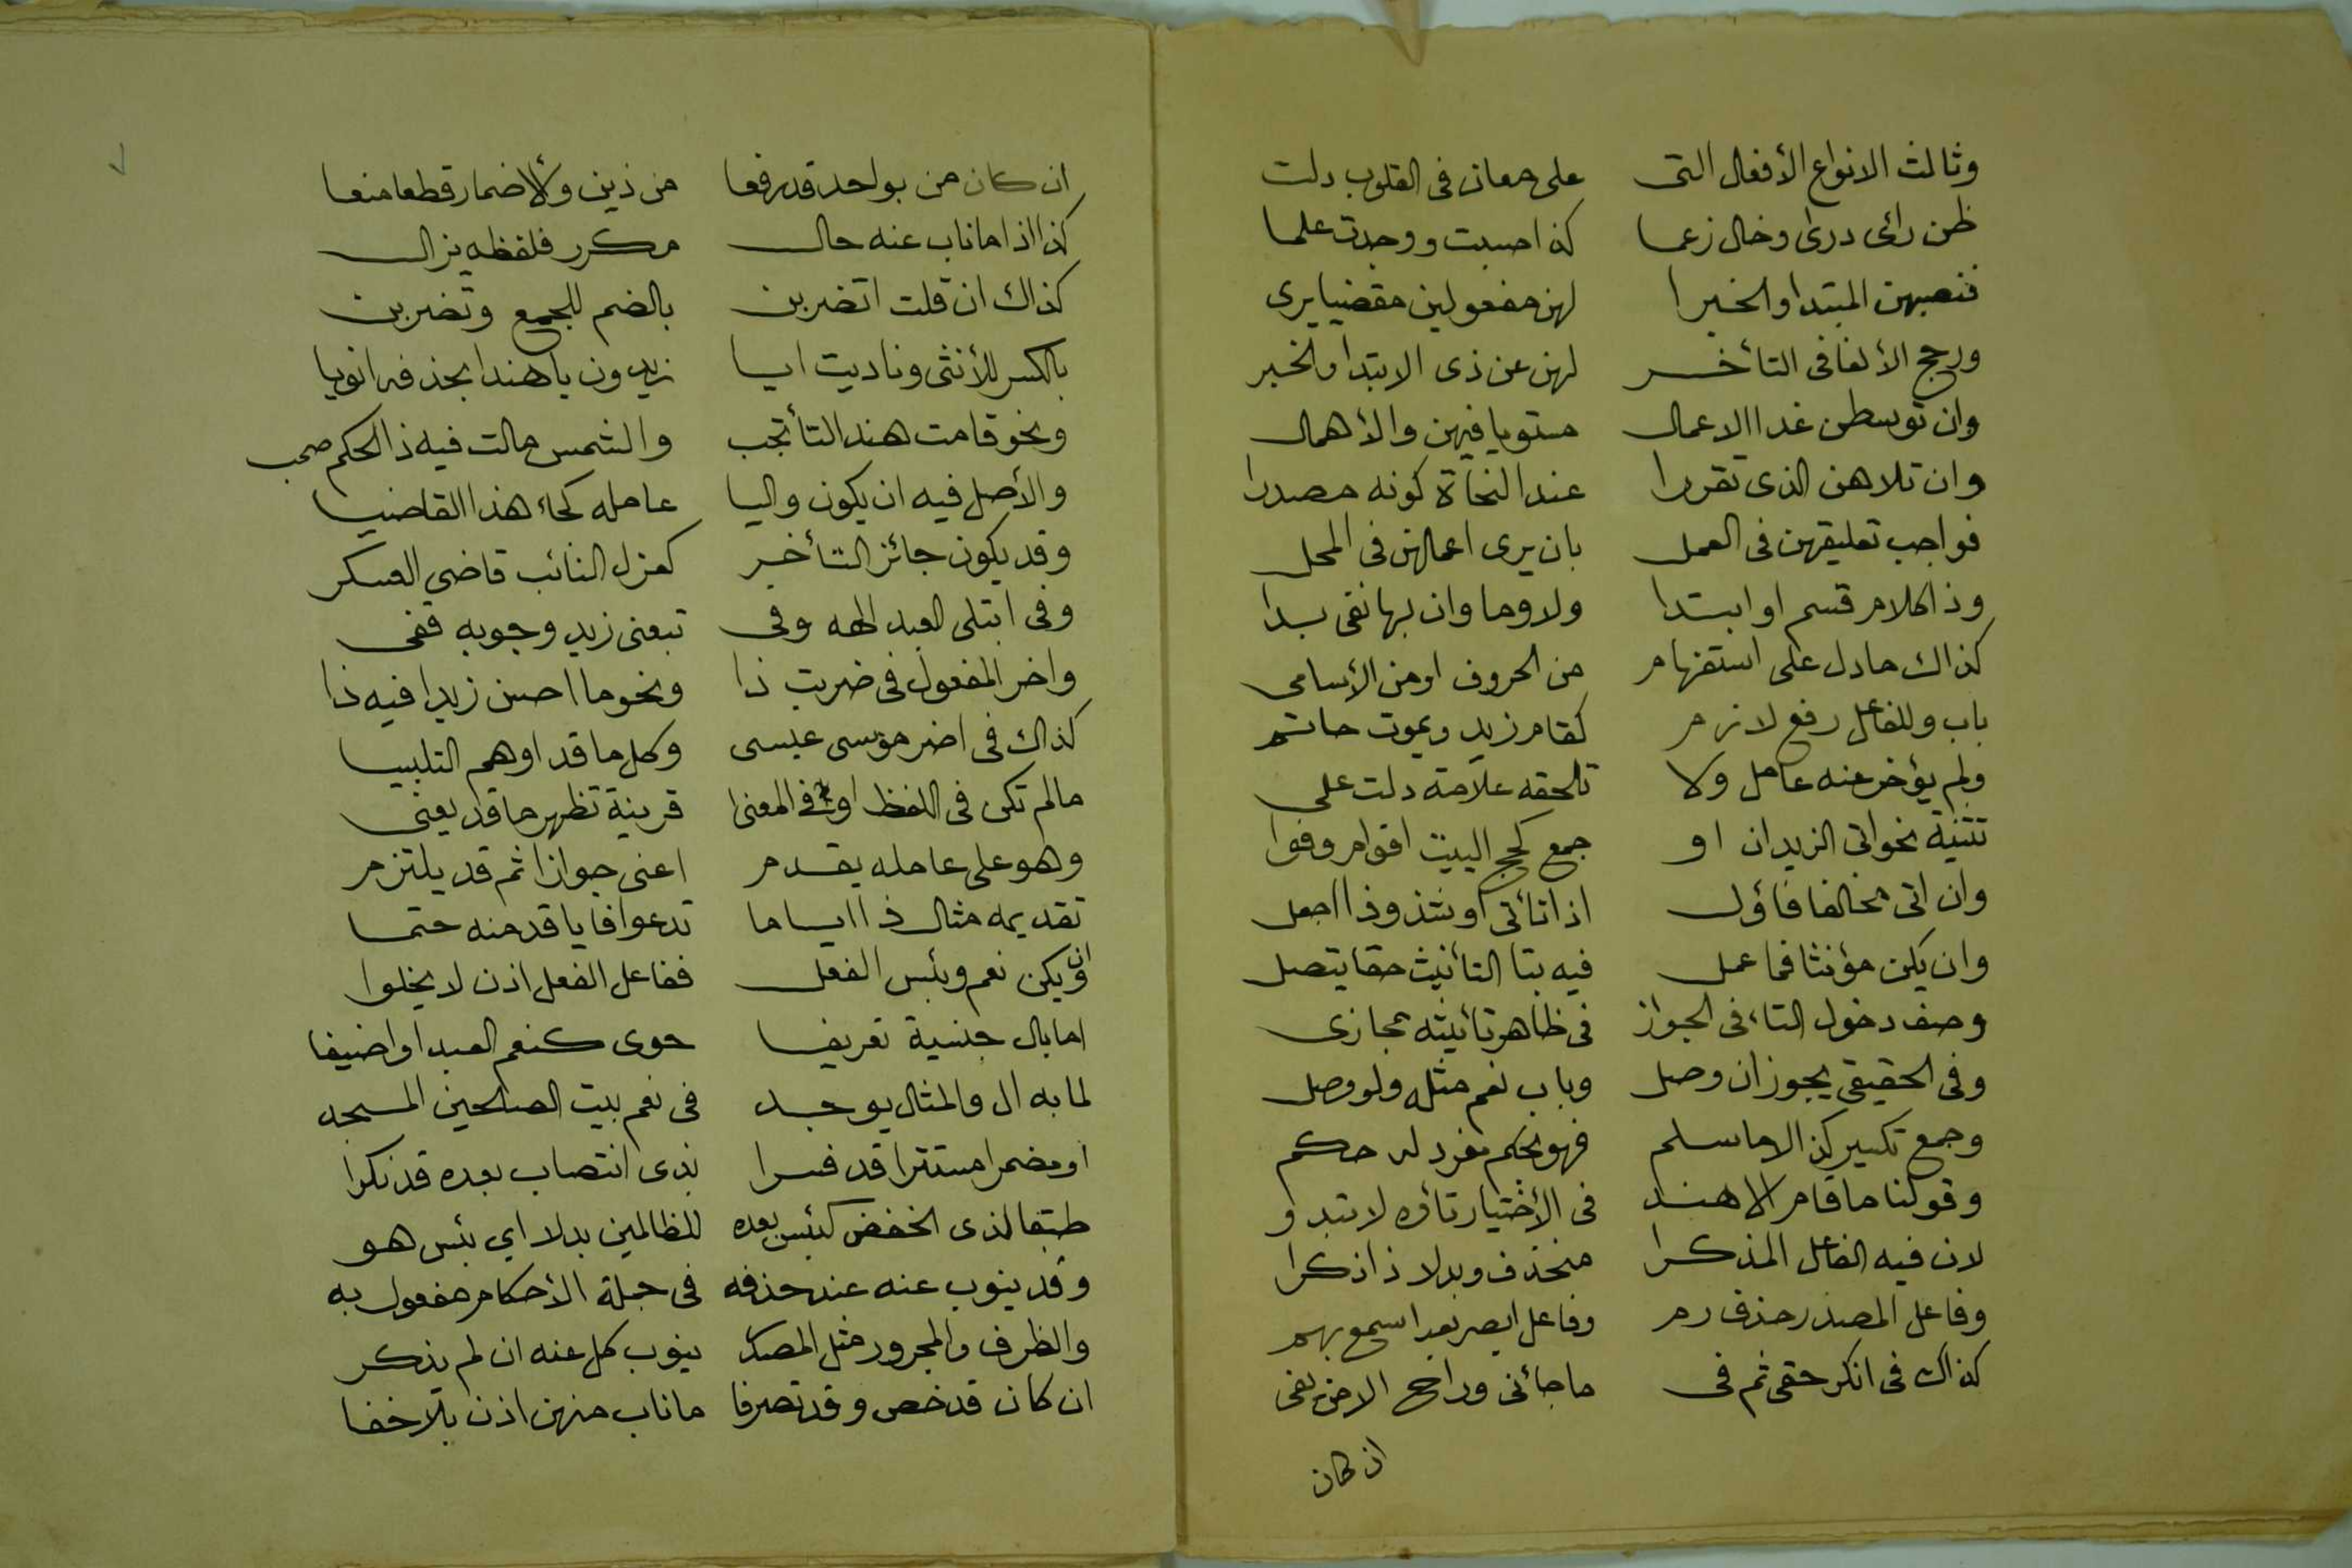 وثالث الانواع الأفعال التى على معان فى القلوب دلت
ظن رائى درى وخال زعما كذا حسبت ووجدت علما
فنصبهن المبتدا والخبرا لهن مفعولين مقضيا يرى
ورجح الألغا فى التأخر لهن عن ذى الابتدا والخبر
وان توسطن غدا الاعمال مستويا فيهن والأهمال
وان تلاهن الذى تقررا عند النحاة كونه مصدرا
فواجب تعليقهن فى العمل بان يرى اعمالهن فى المحل
وذا كلام قسم او ابتدا ولا وما وان بها نفى بدا
كذاك مادل على استفهام من الحروف او من الأسامى
باب وللفاعل رفع لازم كقام زيد ويموت حاتم
ولم يؤخر عنه عامل ولا تلحقه علامة دلت على
تثنية نحو اتى الزيدان او جمع كحج البيت اقوام وفوا
وان اتى مخالفا فأول اذا تأتى او شذوذا اجعل
وان يكن مؤنثا فما عمل فيه بتا التأنيث حقا يتصل
وصف دخول التاء فى الجواز فى ظاهر تأنيثه مجازى
وفى الحقيقى يجوز ان وصل وباب نعم مثله ولو وصل
وجمع تكسير كذا لا ما سلم فهو بحكم مفرد له حكم
وقولنا ما قام الا هند فى الأختيار تاؤه لا تبدو
لان فيه الفاعل المذكرا منحذف وبدلا ذا ذكرا
وفاعل المصدر حذف رم وفاعل ابصر بعد اسمع بهم
كذاك فى انكر حقى ثم فى ما جائنى وراجح الا من نفى
ان كان
ان كان من بواحد قد رفعا من ذين والأضمار قطعا منعا
كذا اذا ما ناب عنه حال مكرر فلفظه يزال
كذاك ان قلت اتضربن بالضم للجمع وتضربن
بالكسر للأنثى وناديت ايا زيدون يا هندا بحذفه انويا
ونحو قامت هند التا تجب والشمس مالت فيه ذا الحكم صحب
والأصل فيه ان يكون واليا عامله كجاء هذا القاضيا
وقد يكون جائز التأخير كعزل النائب قاضي العسكر
وفى ابتلى العبد الهه وفى تبعنى زيد وجوبه قفى
واخر المفعول فى ضربت ذا ونحو ما احسن زيدا فيه ذا
كذاك فى اضر موسى عيسى وكل ما قد اوهم التلبيسا
مالم تكن فى اللفظ او فى المعنى قرينة تظهر ما قد يعنى
وهو على عامله يقدم اعنى جوازا ثم قد يلتزم
تقديمه مثال ذا اياما تدعوا فايا قدمنه حتما
وان يكن نعم وبئس الفعل ففاعل الفعل اذن لا يخلوا
اما بال جنسية تعريفا حوى كنعم العبد او اضيفا
لما به ال والمثال يوجد فى نعم بيت الصالحين المسجد
او مضمرا مستترا قد فسرا بذى انتصاب بعده قد نكرا
طبقا لذى الخفض كبئس بعده للظالمين بدلا اي بئس هو
وقد ينوب عنه عند حذفه فى جملة الأحكام مفعول به
والظرف والمجرور مثل المصدر ينوب كل عنه ان لم يذكر
ان كان قد خص وقد تصرفا ما ناب منهن اذن بلا خفا